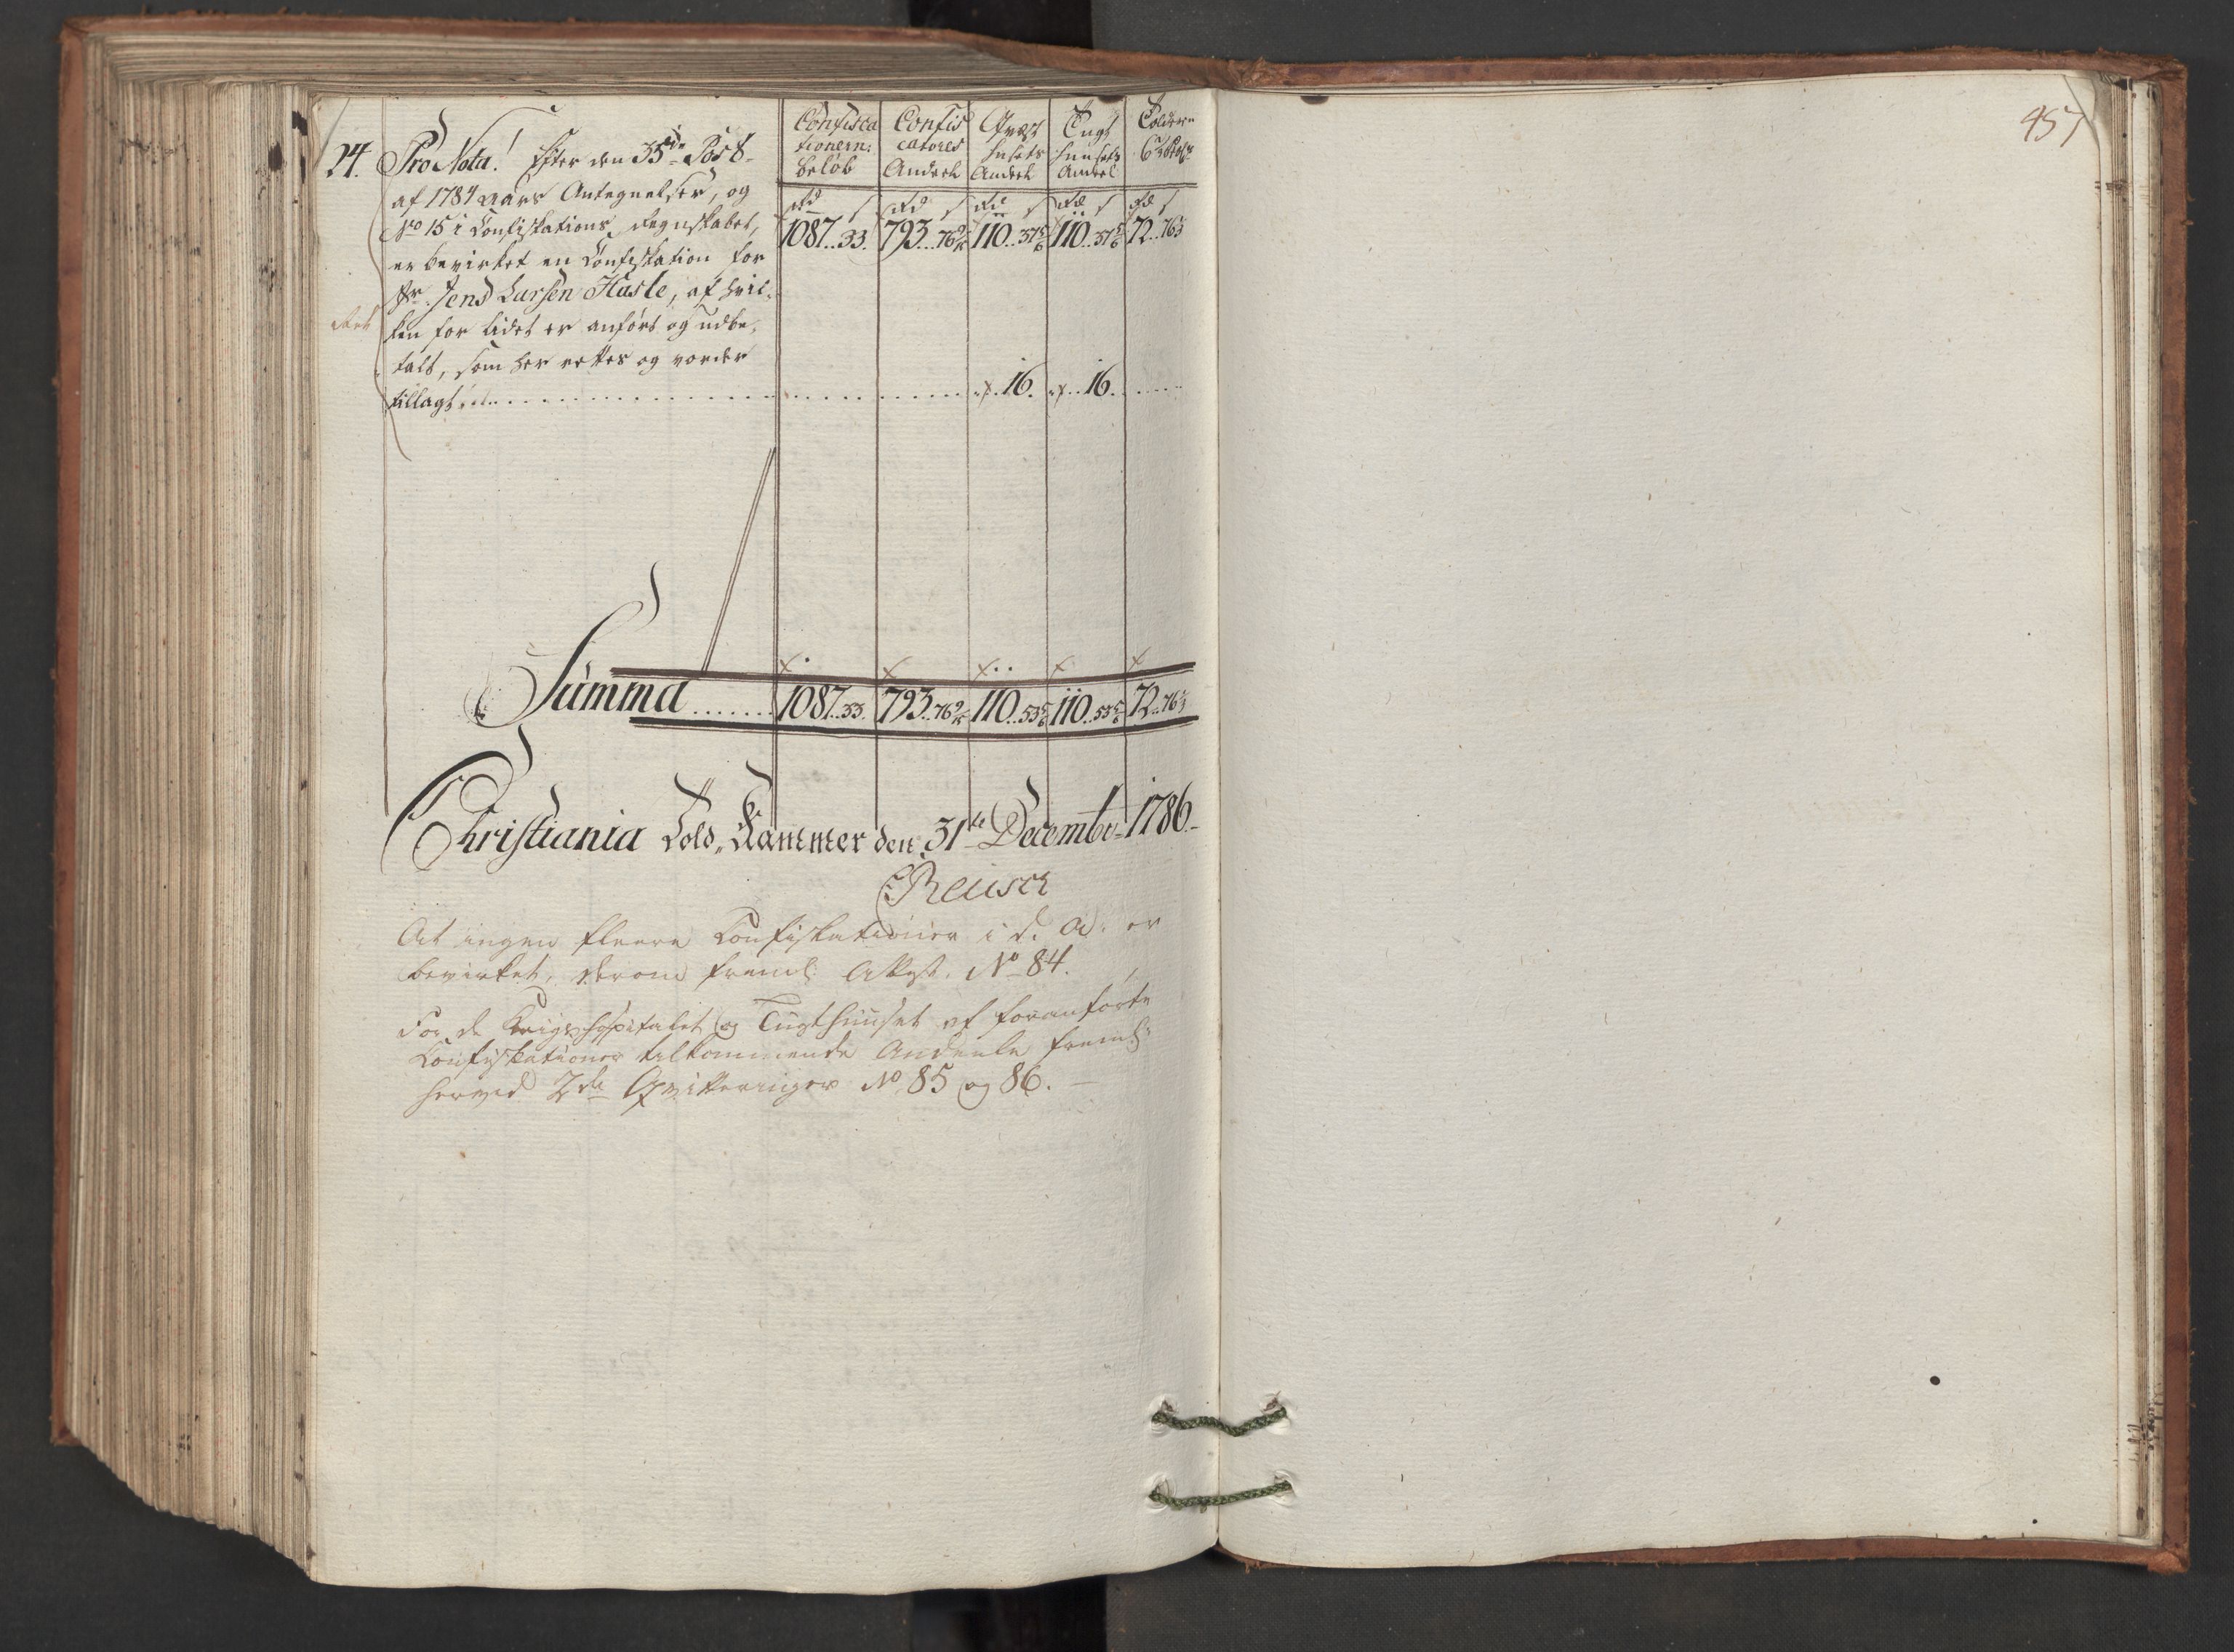 Confisca
tionern:
beløb
Confis
catores
Andeel
Qvæst
husets
Andeel
Tugt
huusets
Andeel
Tolderne
24. Pro Nota! Efter den 35de Post
af 1784 Aars Antegnelser, og
No 15 i Confiskations Regnskabet,
er bevirket en Confiskation for
Hr. Jens Larsen Hasle, af hvil-
ken for lidet er anført og udbe-
talt, som her rettes og vorder
tillagt
rd s rd s rd s rd s rd s
1087..33. 793..76 110..37 5/6 110..37 5/6 72..76
16. 16.
Summa ....... 1087..33. 793..76 110..53 5/6 110..53 5/6 72..76
Christiania Told-Kammer den 31te Decembr 1786.
Reusch
At ingen fleere Confiskationer i d: A: er
bevirket, derom freml: Attest. No 84.
For de Krigshospitalet og Tugthuuset af foranførte
Confiskationer tilkommende Andeele freml:
herved 2de Qvitteringer No 85 og 86.
457